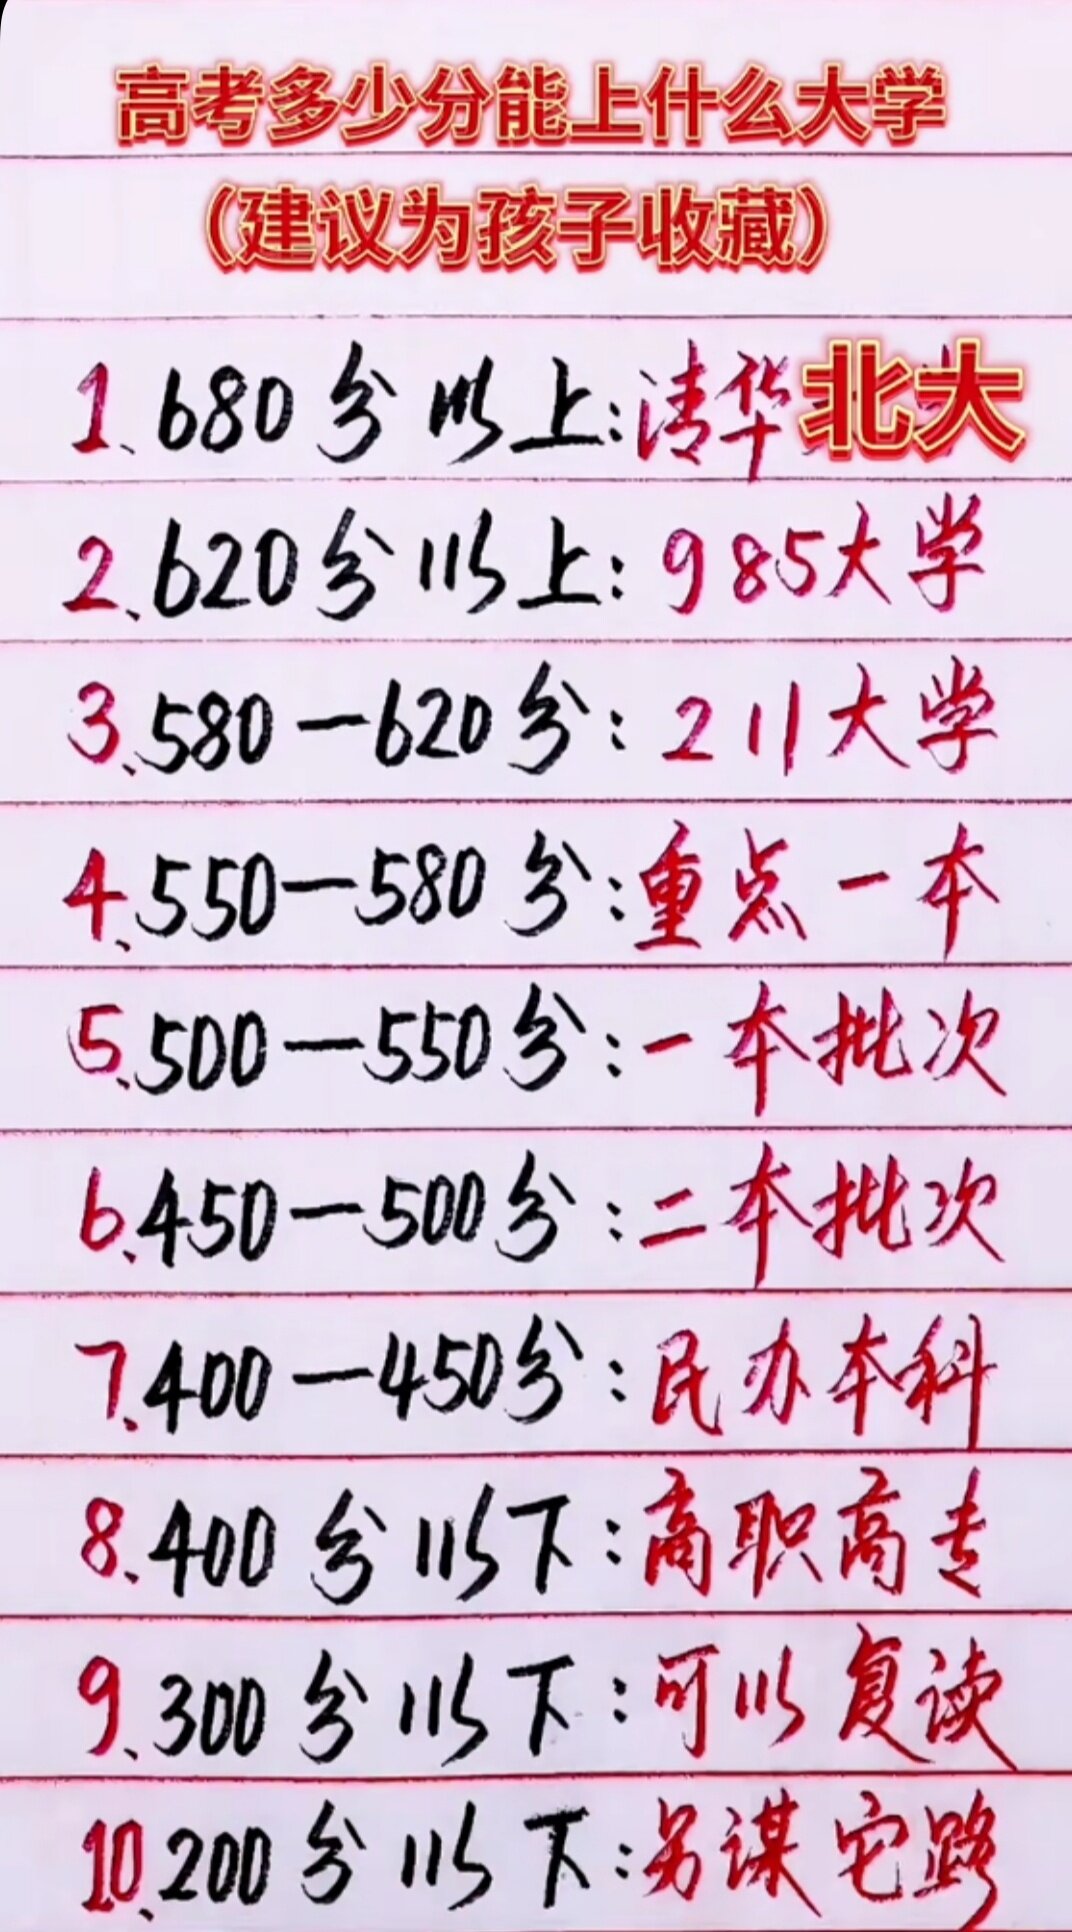 高考多少分能上什么大学
(建议为孩子收藏)
1、680分以上:清华北大
2、620分以上:985大学
3、580—620分:211大学
4、550—580分:重点一本
5、500—550分:一本批次
6、450—500分:二本批次
7、400—450分:民办本科
8、400分以下:高职高专
9、300分以下:可以复读
10、200分以下:另谋它路